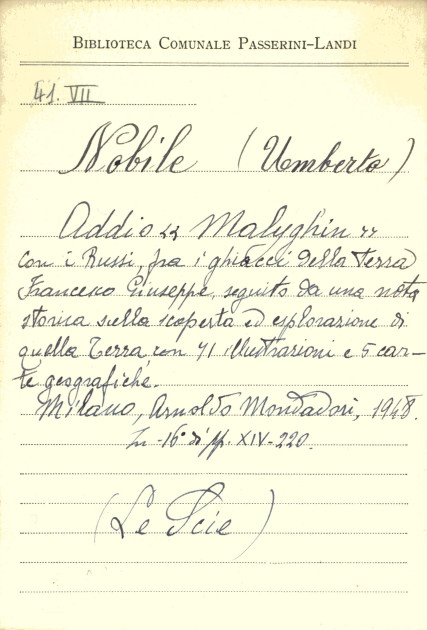 BIBLIOTECA COMUNALE PASSERINI-LANDI
41. VII
Nobile (Umberto)
Addio « Malyghin »
con i Russi, fra i ghiacci della Terra
Francesco Giuseppe, seguito da una nota
storica sulla scoperta ed esplorazione di
quella Terra, con 41 illustrazioni e 5 car-
te geografiche.
Milano, Arnoldo Mondadori, 1948.
In-16° di pp. XIV-220.
(Le Scie)